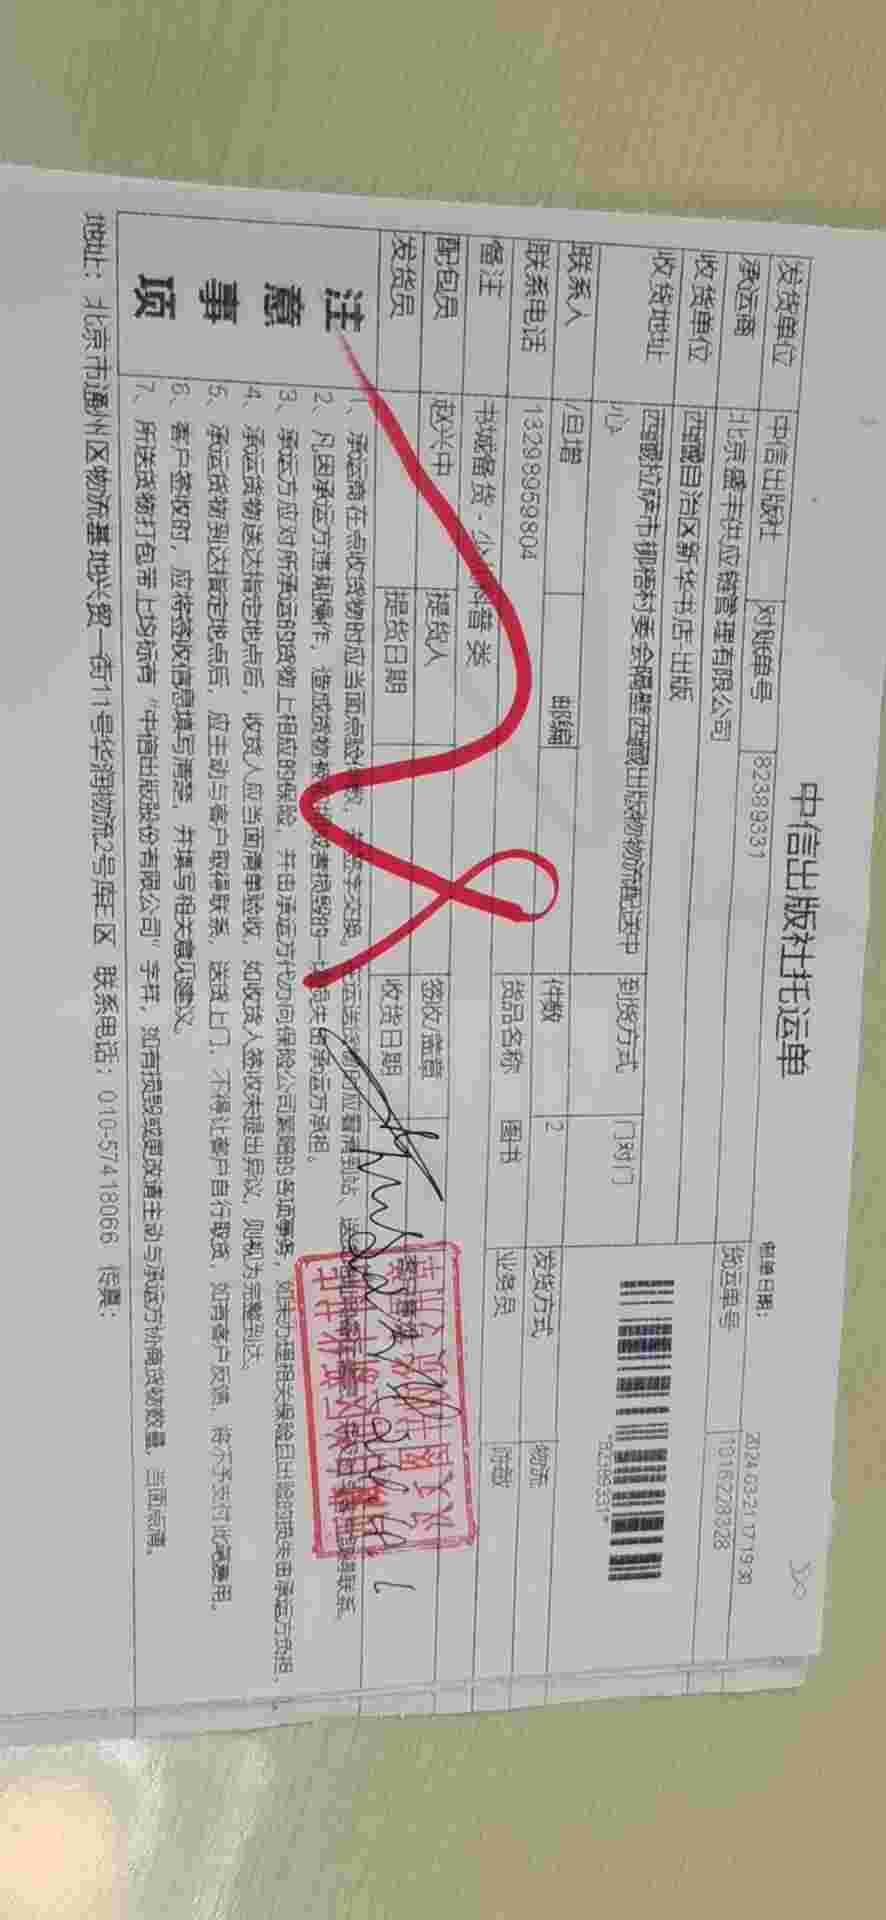 中信出版社托运单
制单日期： 2024-03-21 17:19:30
发货单位 中信出版社 对账单号 82389331 货运单号 1316228328
承运商 北京盛丰供应链管理有限公司
收货单位 西藏自治区新华书店-出版
收货地址 西藏拉萨市柳梧村委会隔壁西藏出版物物流配送中心 到货方式 门对门
*82389331*
联系人 /旦增 邮编 件数 2 发货方式 物流
联系电话 13298959804 货品名称 图书 业务员
备注 书城备货-少儿科普类
配包员 赵兴中 提货人 签收/盖章
发货员 提货日期 收货日期
注意事项
1、承运商在点收货物时应当面点验件数，
2、凡因承运方违规操作，造成货物 损毁的一切损失由承运方承担。
3、承运方应对所承运的货物上相应的保险，并由承运方代办向保险公司索赔的各项事务，如未办理相关保险且出险的损失由承运方负担。
4、承运货物送达指定地点后，收货人应当面清单验收，如收货人签收未提出异议，则视为完整到达
5、承运货物到达指定地点后，应主动与客户取得联系，送货上门，不得让客户自行取货，如有客户反馈，将不予支付此笔费用。
6、客户签收时，应将签收信息填写清楚，并填写相关意见建议
7、所送货物打包带上均标有“中信出版股份有限公司”字样，如有损毁或更改请主动与承运方协商货物数量，当面点清。
地址：北京市通州区物流基地兴贸一街11号华润物流2号库E区 联系电话：010-57418066 传真：